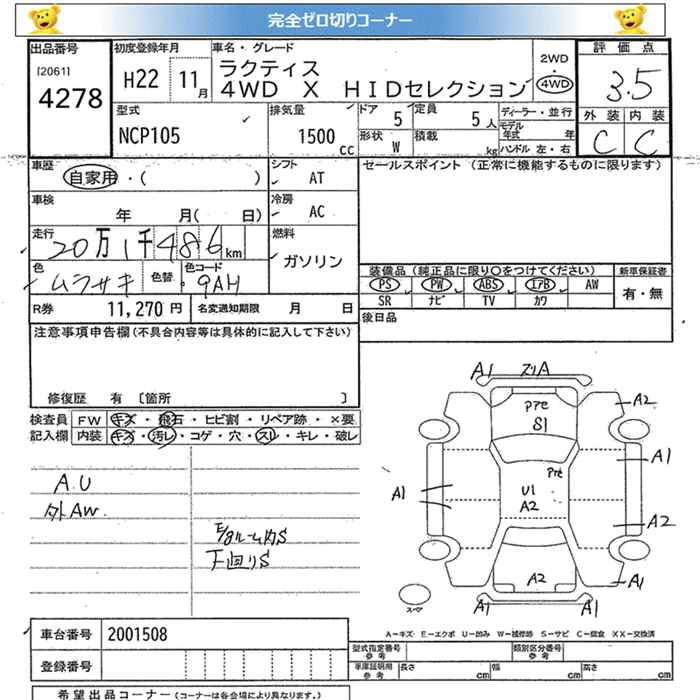 完全ゼロ切りコーナー
出品番号
[2061]
4278
初度登録年月
H22 11月
車名・グレード
ラクティス
4WD X HIDセレクション
2WD
4WD
評価点
3.5
外装 内装
C C
型式
NCP105
排気量
1500 cc
ドア 5
形状 W
定員 5人
積載 kg
ディーラー・並行
モデル年式 年
ハンドル 左・右
車歴
自家用・( )
シフト
AT
車検
年 月( 日)
冷房
AC
走行
20万1千486km
燃料
ガソリン
色
ムラサキ
色替
色コード
9AH
R券 11,270円
名変通知期限 月 日
セールスポイント (正常に機能するものに限ります)
装備品 (純正品に限り○をつけてください)
PS PW ABS エアB AW
SR ナビ TV カワ
新車保証書
有・無
後日品
注意事項申告欄(不具合内容等は具体的に記入して下さい)
修復歴 有 〔箇所 〕
検査員記入欄
FW キズ・飛石・ヒビ割・リペア跡・×要
内装 キズ・汚レ・コゲ・穴・スレ・キレ・破レ
A.U
外AW
E/gルーム内S
下回りS
A1 スリA
A2
pre
S1
A1
pre
A1
U1
A2
A2
A2
A1
A1 A1
スペア
A-キズ・E-エクボ U-凹み W-補修跡 S-サビ C-腐食 XX-交換済
車台番号 2001508
登録番号
型式指定番号
参考
類別区分番号
参考
車庫証明用
参考
長さ cm 幅 cm 高さ cm
希望出品コーナー (コーナーは各会場により異なります。)